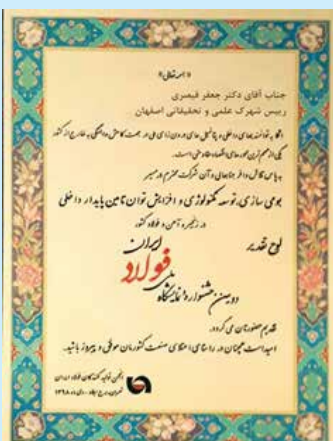 « بسمه تعالی »
جناب آقای دکتر جعفر قیصری
رییس شهرک علمی و تحقیقاتی اصفهان
اتکا به توانمندیهای داخلی و پتانسیل های درون زای ملی در جهت کاهش وابستگی به خارج از کشور
یکی از مهم ترین محورهای اقتصاد مقاومتی است.
به پاس تلاش وافر جنابعالی و آن شرکت محترم در مسیر
بومی سازی، توسعه تکنولوژی و افزایش توان تامین پایدار داخلی
در زنجیره آهن و فولاد کشور
لوح تقدیر
دومین جشنواره و نمایشگاه ملی فولاد ایران
تقدیم حضورتان می گردد.
امید است همچنان در راستای اعتلای صنعت کشورمان موفق و پیروز باشید.
انجمن تولید کنندگان فولاد ایران
تهران، برج میلاد - دی ماه ۱۳۹۸